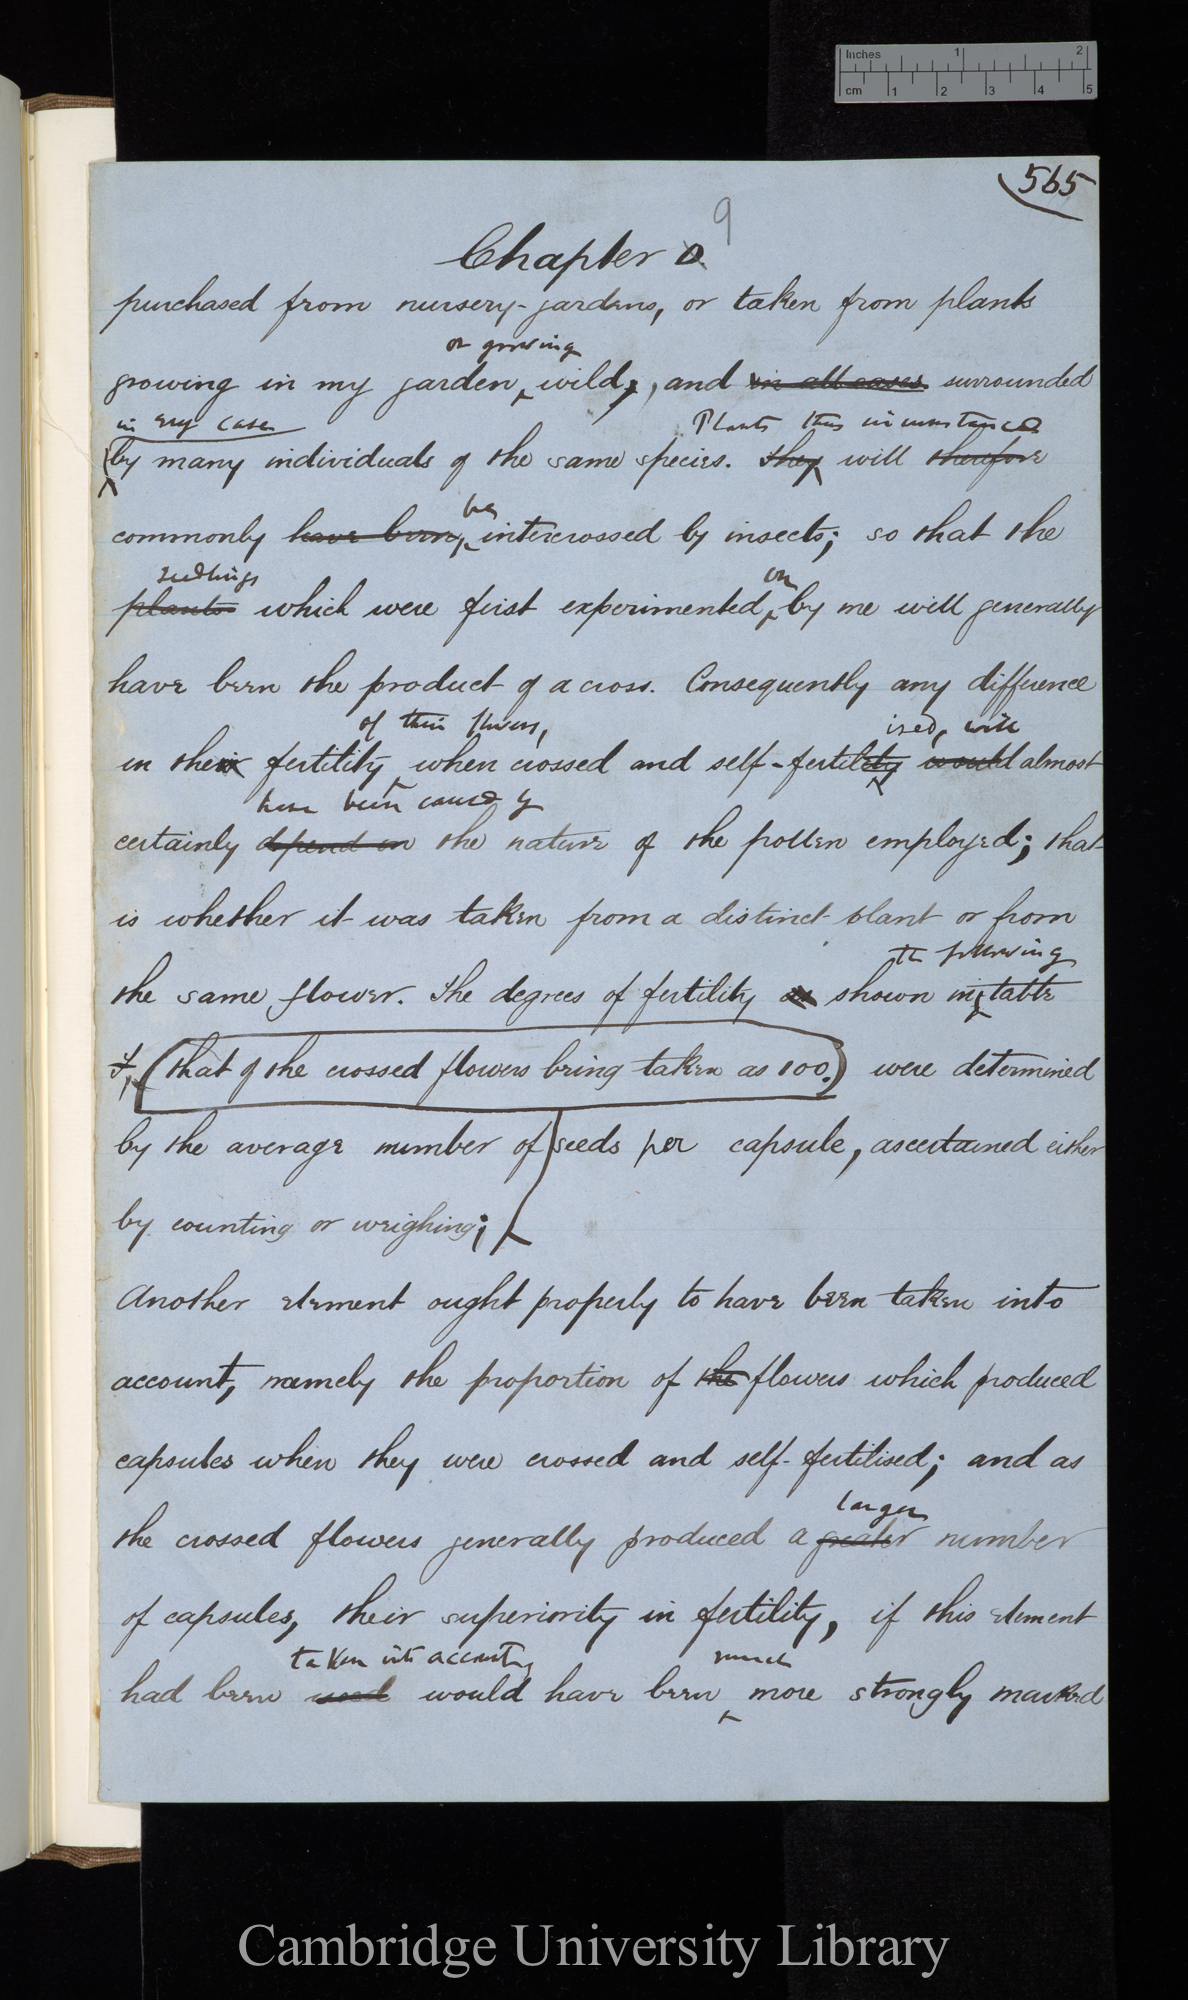 Inches 1 2
cm 1 2 3 4 5
565
9
Chapter
purchased from nursery-gardens, or taken from plants
or growing
growing in my garden, wild, and in all cases surrounded
in my case Plants thus circumstanced
by many individuals of the same species. they will therefore
be
commonly have been, intercrossed by insects; so that the
seedlings on
plants which were first experimented by me will generally
have been the product of a cross. Consequently any difference
of their flowers, ised, will
in their fertility when crossed and self-fertility would almost
have been caused by
certainly depend on the nature of the pollen employed; that
is whether it was taken from a distinct plant or from
the following
the same flower. The degrees of fertility as shown in table
F, (that of the crossed flowers being taken as 100.) were determined
by the average number of seeds per capsule, ascertained either
by counting or weighing;
Another element ought properly to have been taken into
account, namely the proportion of the flowers which produced
capsules when they were crossed and self-fertilised; and as
larger
the crossed flowers generally produced a greater number
of capsules, their superiority in fertility, if this element
taken into account, much
had been used would have been more strongly marked
Cambridge University Library